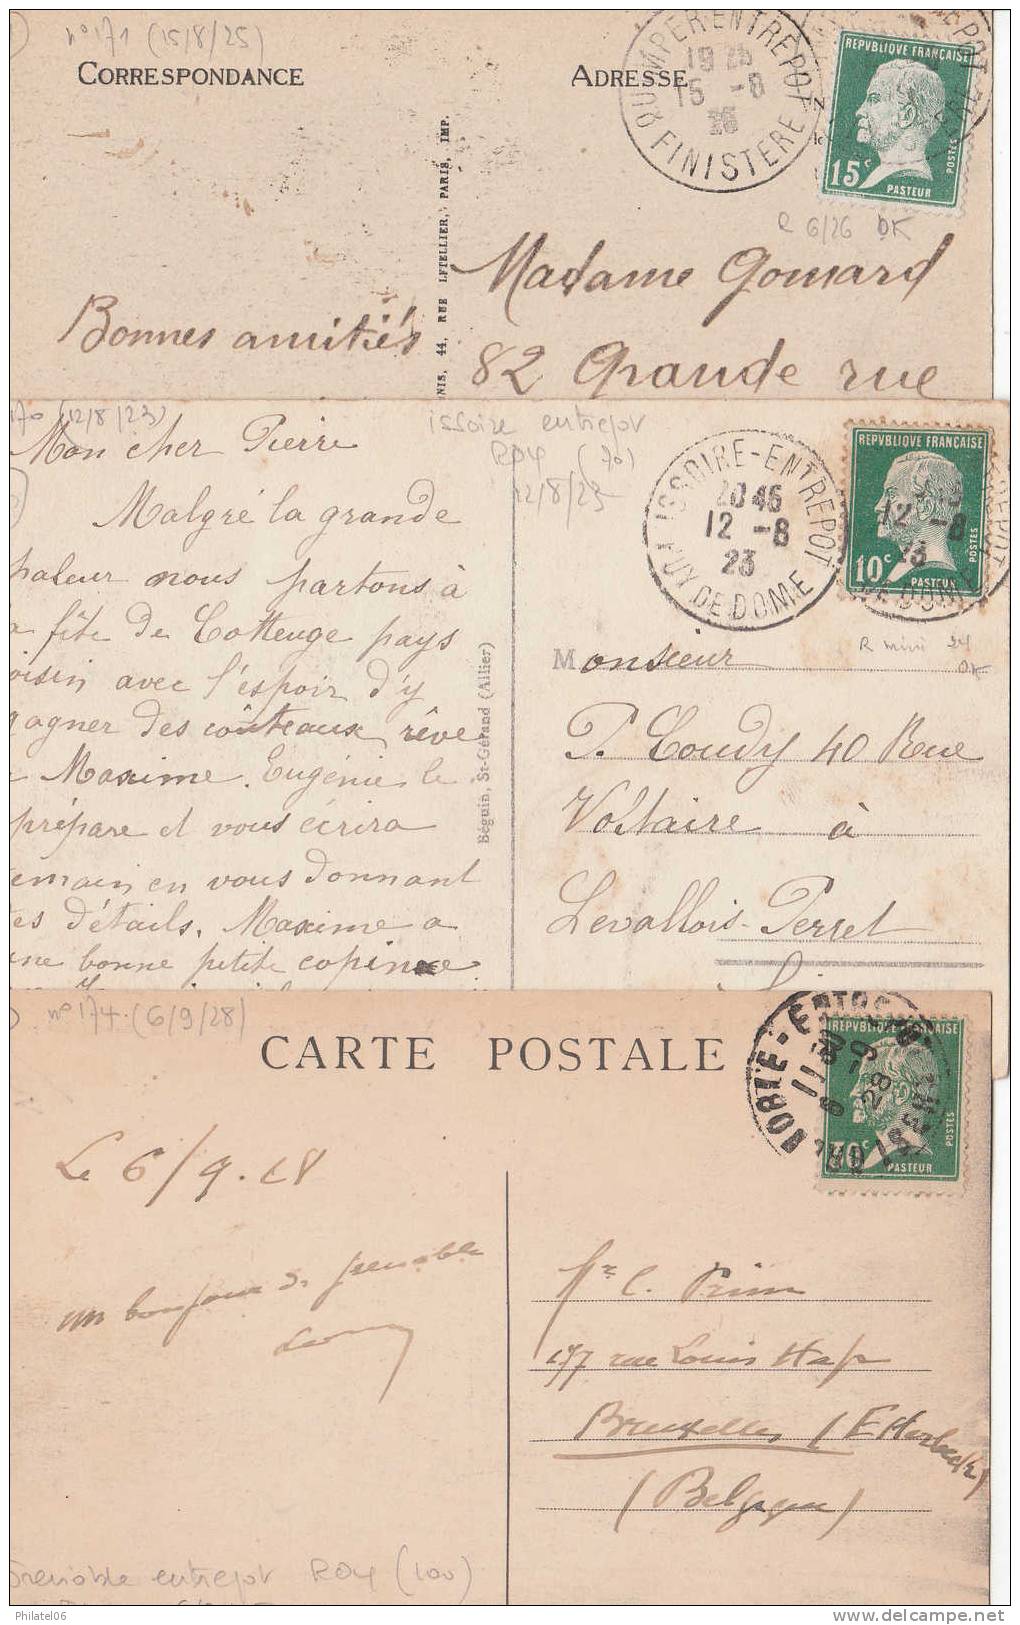 n°171 (15/8/25)
CORRESPONDANCE
ADRESSE
QUIMPER ENTREPOT
15 -8
FINISTERE
REPVBLIQUE FRANÇAISE
15c
POSTES
PASTEUR
R 6/26 OK
NIS, 44, RUE LETELLIER, PARIS, IMP.
Bonnes amitiés
Madame Gomard
82 Grande rue
170 (12/8/23)
Mon cher Pierre
Malgré la grande
haleur nous partons à
a fête de Cotteuge pays
oisin avec l'espoir d'y
gagner des coûteaux, rêve
Maxime. Eugénie le
prépare et vous écrira
emain en vous donnant
es détails. Maxime a
ne bonne petite copine
issoire entrepot
ROY (70)
12/8/23
ISSOIRE-ENTREPOT
20 45
12 -8
23
PUY DE DOME
REPVBLIQUE FRANÇAISE
12 -8
23
10c
POSTES
PASTEUR
R mini 24
OK
Béguin, St-Gérand (Allier)
Monsieur
P. Coudy 40 Rue
Voltaire à
Levallois-Perret
n°174 (6/9/28)
CARTE POSTALE
REPVBLIQUE FRANÇAISE
POSTES
PASTEUR
11 30
6 -9
28
Le 6/9.28
un bonjour de Grenoble
Mr C. Prim
177 rue Louis Hap
Bruxelles (Etterbeek)
(Belgique)
Grenoble entrepot ROY (100)
Philatel06
www.delcampe.net